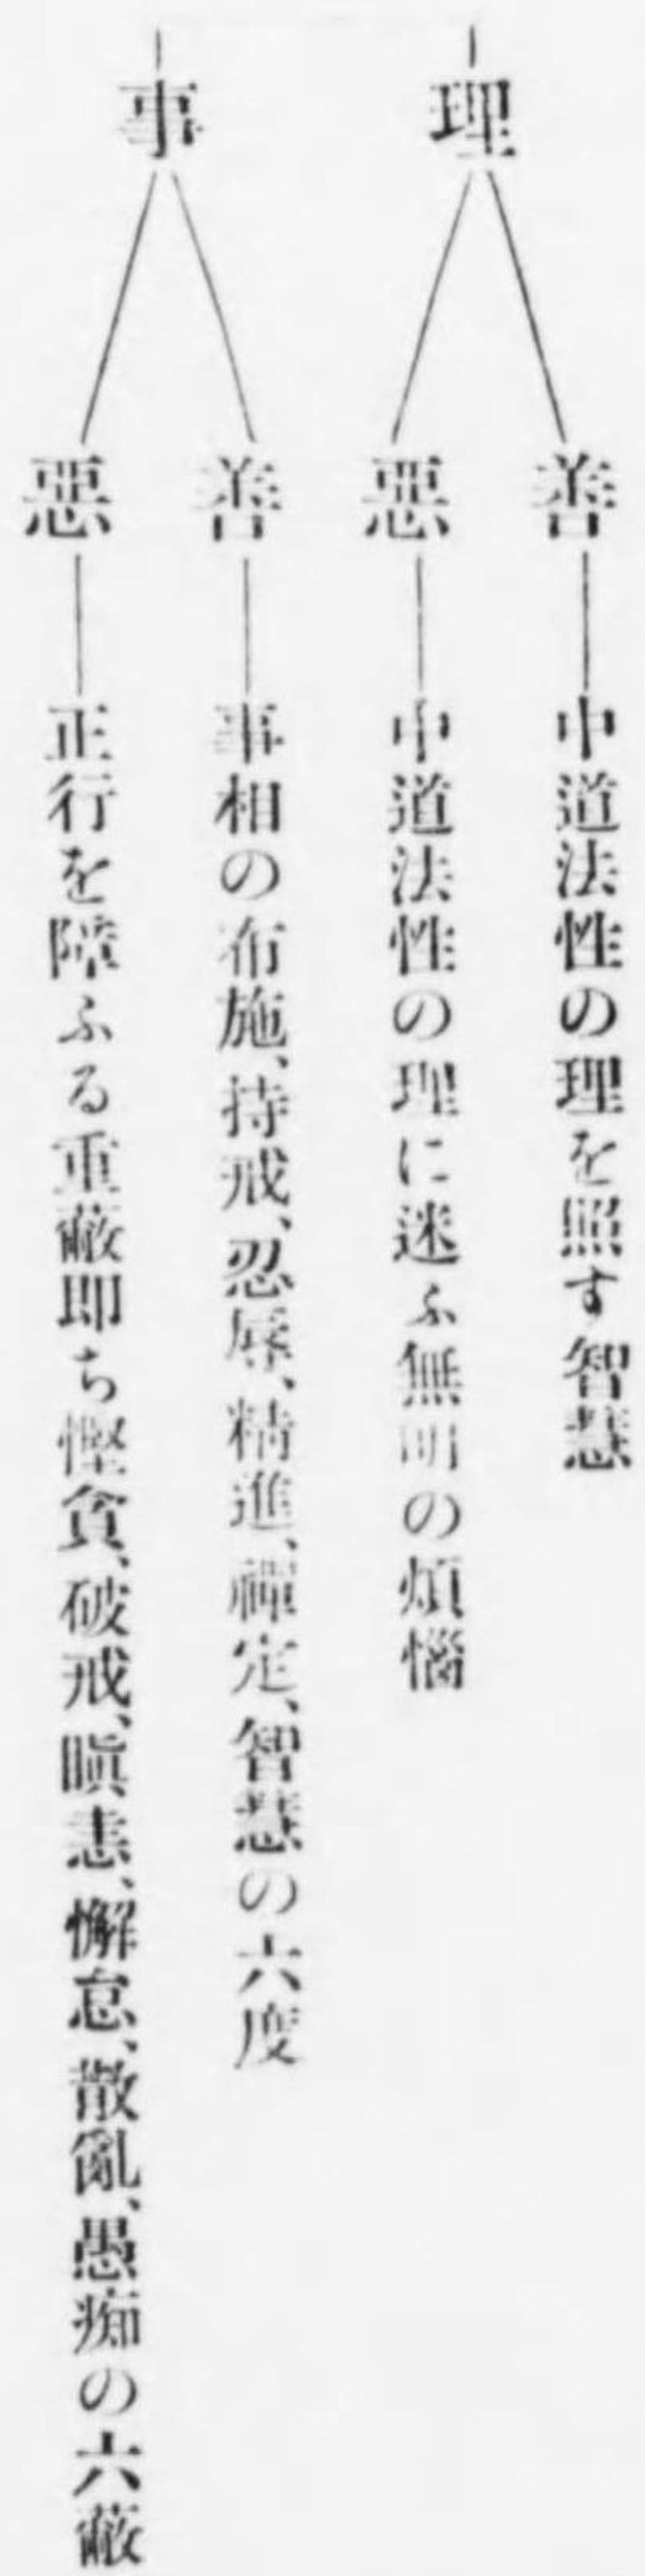 理
善
中道法性の理を照す智慧
惡
中道法性の理に迷ふ無明の煩惱
事
善
事相の布施、持戒、忍辱、精進、禪定、智慧の六度
惡
正行を障ふる重蔽即ち慳貪、破戒、瞋恚、懈怠、散亂、愚痴の六蔽